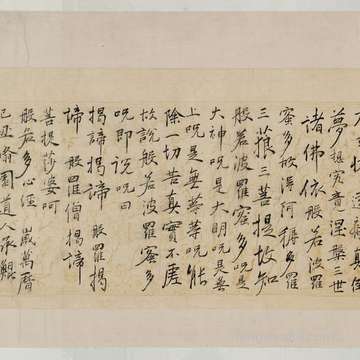 夢想究竟涅槃三世
諸佛依般若波羅
蜜多故得阿耨多羅
三藐三菩提故知
般若波羅蜜多呪是
大神呪是大明呪是無
上呪是無等等呪能
除一切苦真實不虛
故說般若波羅蜜多
呪即說呪曰
揭諦揭諦 般羅揭
諦 般羅僧揭諦
菩提莎婆呵
般若多心經 歲萬曆
己丑園道人承鯤